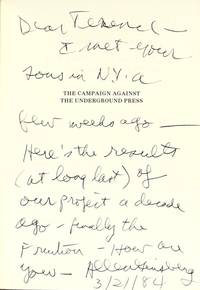 Dear Terence —
I met your
sons in N.Y. a
THE CAMPAIGN AGAINST
THE UNDERGROUND PRESS
few weeks ago —
Here's the results
(at long last) of
our project a decade
ago — finally the
Fruition — How are
you — Allen Ginsberg
3/21/84